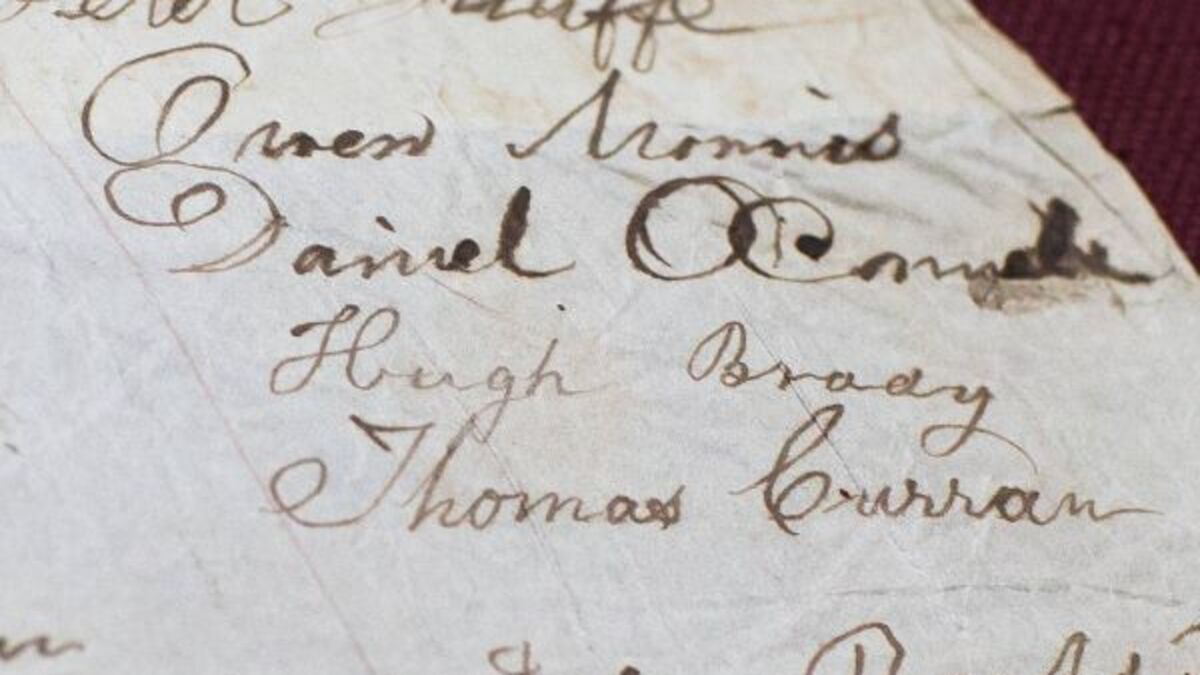 Owen Morris
Daniel O Connell
Hugh Brady
Thomas Curran